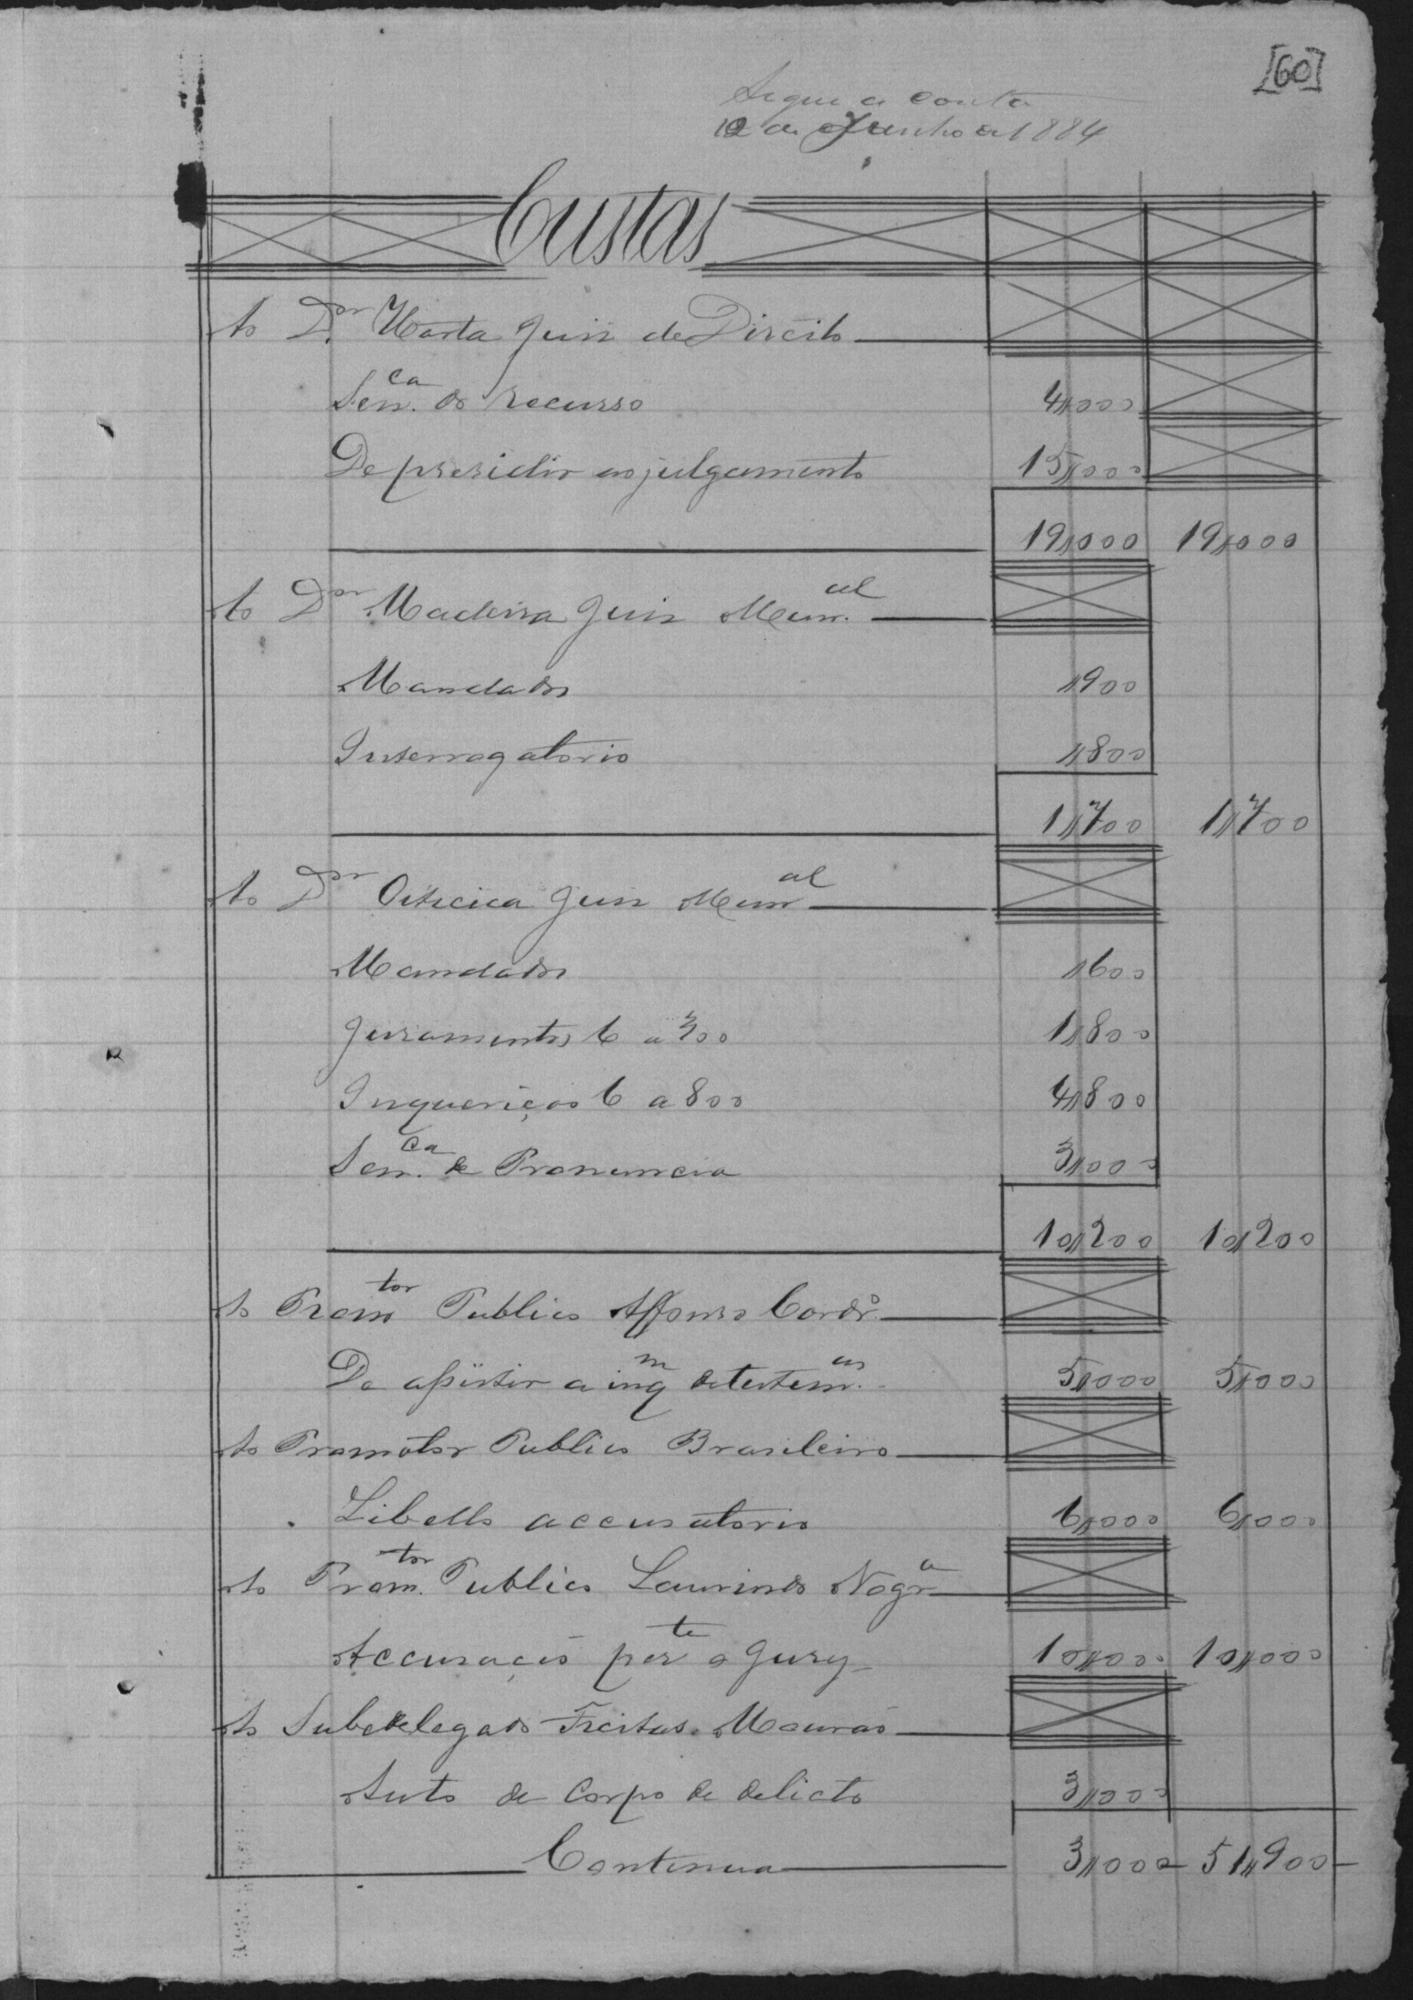 [60]
Segue a conta
12 de Junho de 1884
Custas
Ao Dor Horta Juiz de Direito
Senca do recurso 4,000
De presidir ao julgamento 15,000
19,000 19,000
Ao Dor Madeira Juiz Munal
Mandados ,900
Interrogatorio ,800
1,700 1,700
Ao Dor Oiticica Juiz Munal
Mandados ,600
Juramentos 6 a 300 1,800
Inquerições 6 a 800 4,800
Senca de Pronuncia 3,000
10,200 10,200
Ao Promtor Publico Affonso Cordro
De assistir a inqm de testemas 5,000 5,000
Ao Promotor Publico Brasileiro
Libello accusatorio 6,000 6,000
Ao Promtor Publico Laurindo Nogra
Accusação perte o Jury 10,000 10,000
Ao Subdelegado Freitas Mourão
Auto de Corpo de delicto 3,000
Continua 3,000 51,900